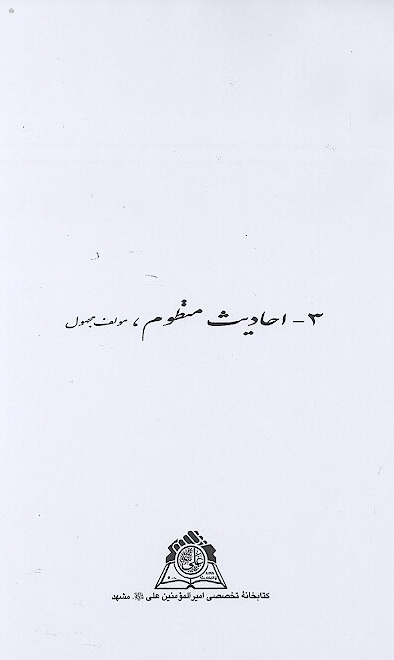 ۳ - احادیث منظوم ، مولف مجهول
کتابخانهٔ تخصصی امیرالمؤمنین علی ﷺ مشهد